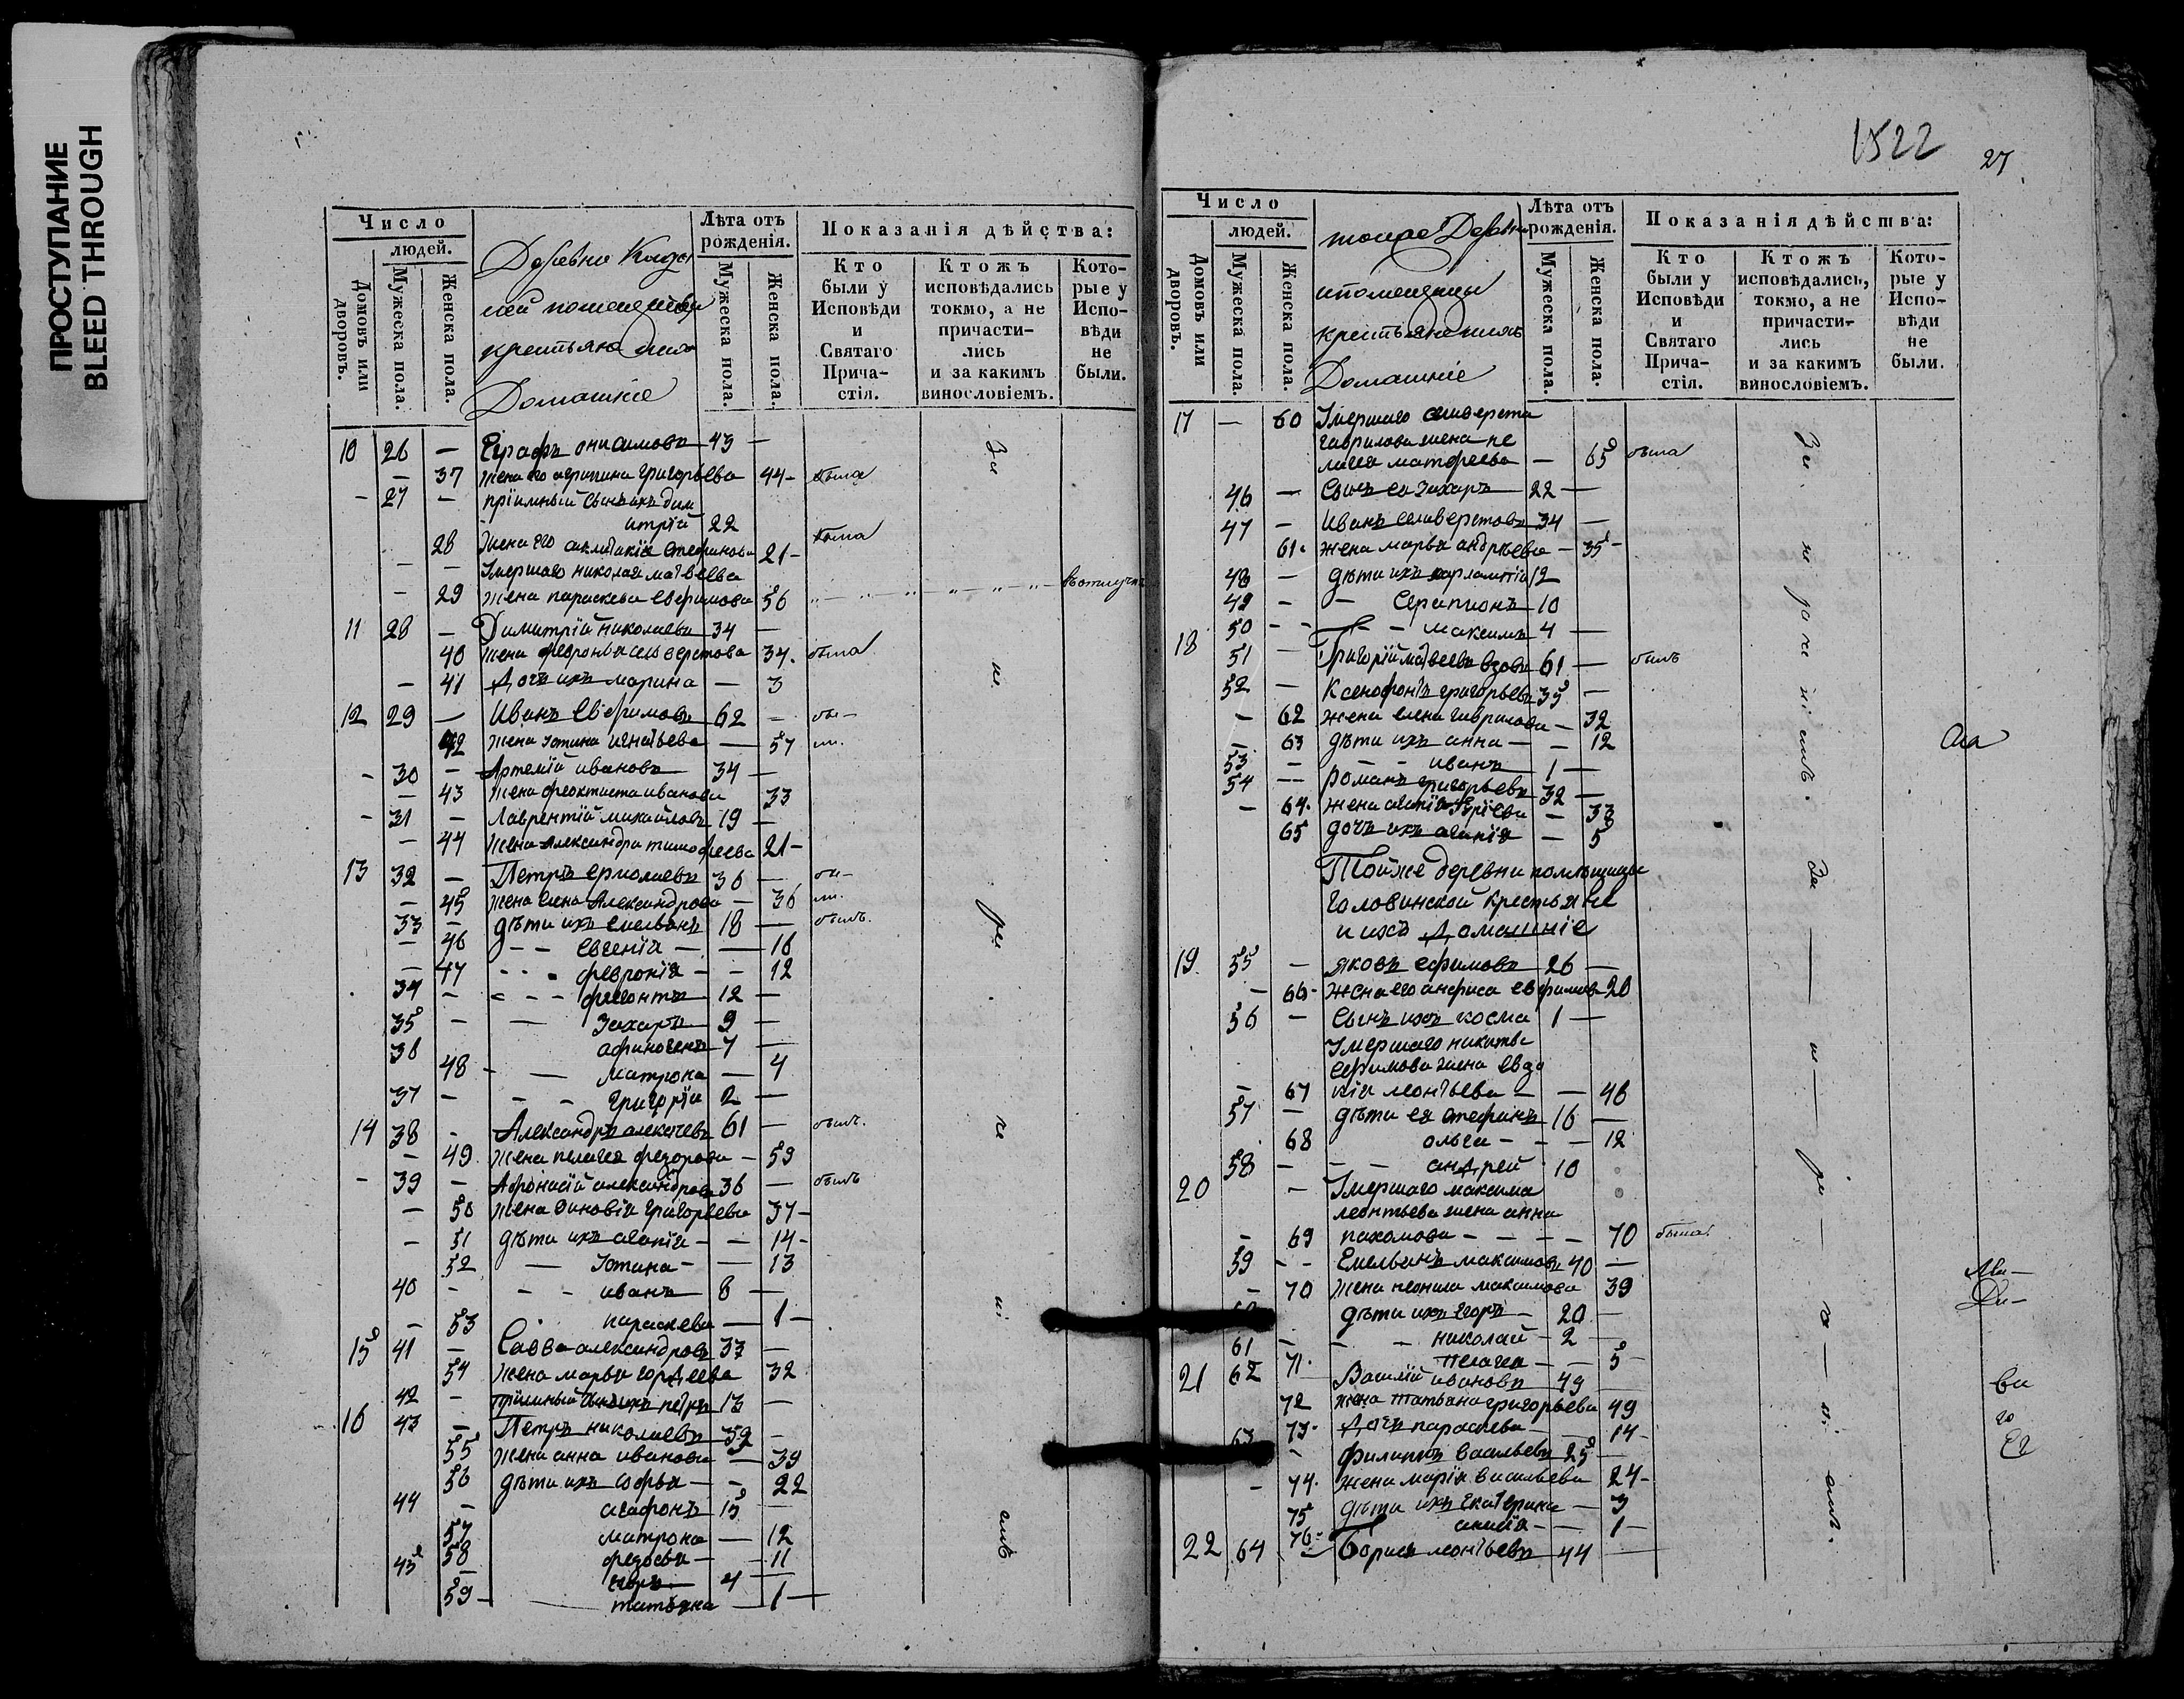 ПРОСТУПАНИЕ
BLEED THROUGH
Число
людей.
Домовъ или дворовъ.
Мужеска пола.
Женска пола.
Деревни
крестьяне
Домашніе
Лѣта отъ рожденія.
Мужеска пола.
Женска пола.
Показанія дѣйства:
Кто были у Исповѣди и Святаго Прича-стія.
Ктожъ исповѣдались токмо, а не причасти-лись и за какимъ винословіемъ.
Кото-рые у Испо-вѣди не были.
10 26 — онисимовъ 43 —
— 37 жена его агрипина григорьева 44 — была
— 27 — пріимный сынъ ихъ дим
итрій 22
28 жена его стефанова 21 — была
— — Умершаго николая матвеева
— 29 жена параскева ефимова 56 въ отлучкѣ
11 28 — Димитрій николаевъ 34 —
40 жена февронья селиверстова 34. была
— 41 дочь ихъ марина — 3
12 29 — Иванъ ефимовъ 62 —
42 жена устина игнатьева — 57
— 30 — Артемій ивановъ 34 —
— 43 жена феоктиста иванова 33
— 31 — Лаврентій михайловъ 19 —
— 44 жена Александра тимофеева 21 —
13 32 — Петръ ермолаевъ 36 —
— 45 жена елена Александрова — 36
33 — дѣти ихъ емельянъ 18 — былъ.
— 46 — — евгенія — — 16
— 47 - - - февронія — — 12
34 — - - - 12 —
35 — — Захаръ 9 —
36 афиногенъ 7 —
48 — — Матрона — 4
37 — - - григорій 2 —
14 38 - Александръ алексѣевъ 61 — былъ.
— 49. жена пелагея федорова — 59
— 39 — Афонасій александровъ 36 — былъ
— 50 жена зиновія григорьева 37 —
— 51 дѣти ихъ агапія — — 14 -
52 — Устина — — 13
40 - - - иванъ 8 —
— 53 параскева — 1 —
15 41 — Савва александровъ 33 —
54 жена марья гордеева 32
42 - пріимный сынъ ихъ петръ 13 —
16 43 — Петръ николаевъ 39 —
55 жена анна иванова — 39
56 дѣти ихъ софья — — 22
44 — агафонъ 15 —
57 матрона — 12
58 федосья — — 11
45 — 4 —
59 — татьяна — 1 —
1522
27
Число
людей.
Домовъ или дворовъ.
Мужеска пола.
Женска пола.
тоиже Деревни
помещицы
крестьяне
Домашніе
Лѣта отъ рожденія.
Мужеска пола.
Женска пола.
Показанія дѣйства:
Кто были у Исповѣди и Святаго Прича-стія.
Ктожъ исповѣдались, токмо, а не причасти-лись и за какимъ винословіемъ.
Кото-рые у Испо-вѣди не были.
17 — 60 Умершаго селиверста
гаврилова жена пе
лагея матфеева — 65 была
46 — Сынъ ея Захаръ 22 —
47 — Иванъ селиверстовъ 34 —
61. жена марья андрѣева — 35 -
48 — дѣти ихъ харлампій 12
49 - — Серапионъ 10
50 - - — - максимъ 4 —
18 51 — Григорій матвеевъ вдовъ 61 — былъ
52 — Ксенофонтъ григорьевъ 35 —
— 62 жена елена гаврилова — 32
— 63 дѣти ихъ анна — — 12
53 — - - иванъ 1 —
54 — романъ григорьевъ 32 —
— 64. жена — 33
65 дочь ихъ агапія — 5
Тойже деревни помѣщицы
Головинской Крестьяне
и ихъ Домашніе
19. 55 — яковъ ефимовъ 26 —
— 66 - жена его анфиса 20
56 — Сынъ ихъ косма 1 —
Умершаго никиты
ефимова жена евдо
— 67 кія леонтьева — — 46
57 — дѣти ея стефанъ 16 —
68 ольга — - — 12
58 — - - андрей 10
20 — Умершаго максима
леонтьева жена анна
— 69 пахомова — - - - 70 была
59 - - Емельянъ максимовъ 40 —
— 70 жена неонила максимова 39
дѣти ихъ егоръ — 20 —
61 — - николай — 2 —
71. — пелагея — — 5 —
21 62 Василій ивановъ 49
72 жена татьяна григорьева 49
73. дочь параскева — — 14 —
63 — филиппъ васильевъ 25 —
— 74. жена марія васильева 24 —
75 дѣти ихъ екатерина — 3
76 — — 1 —
22 64 — Борисъ леонтьевъ 44 —